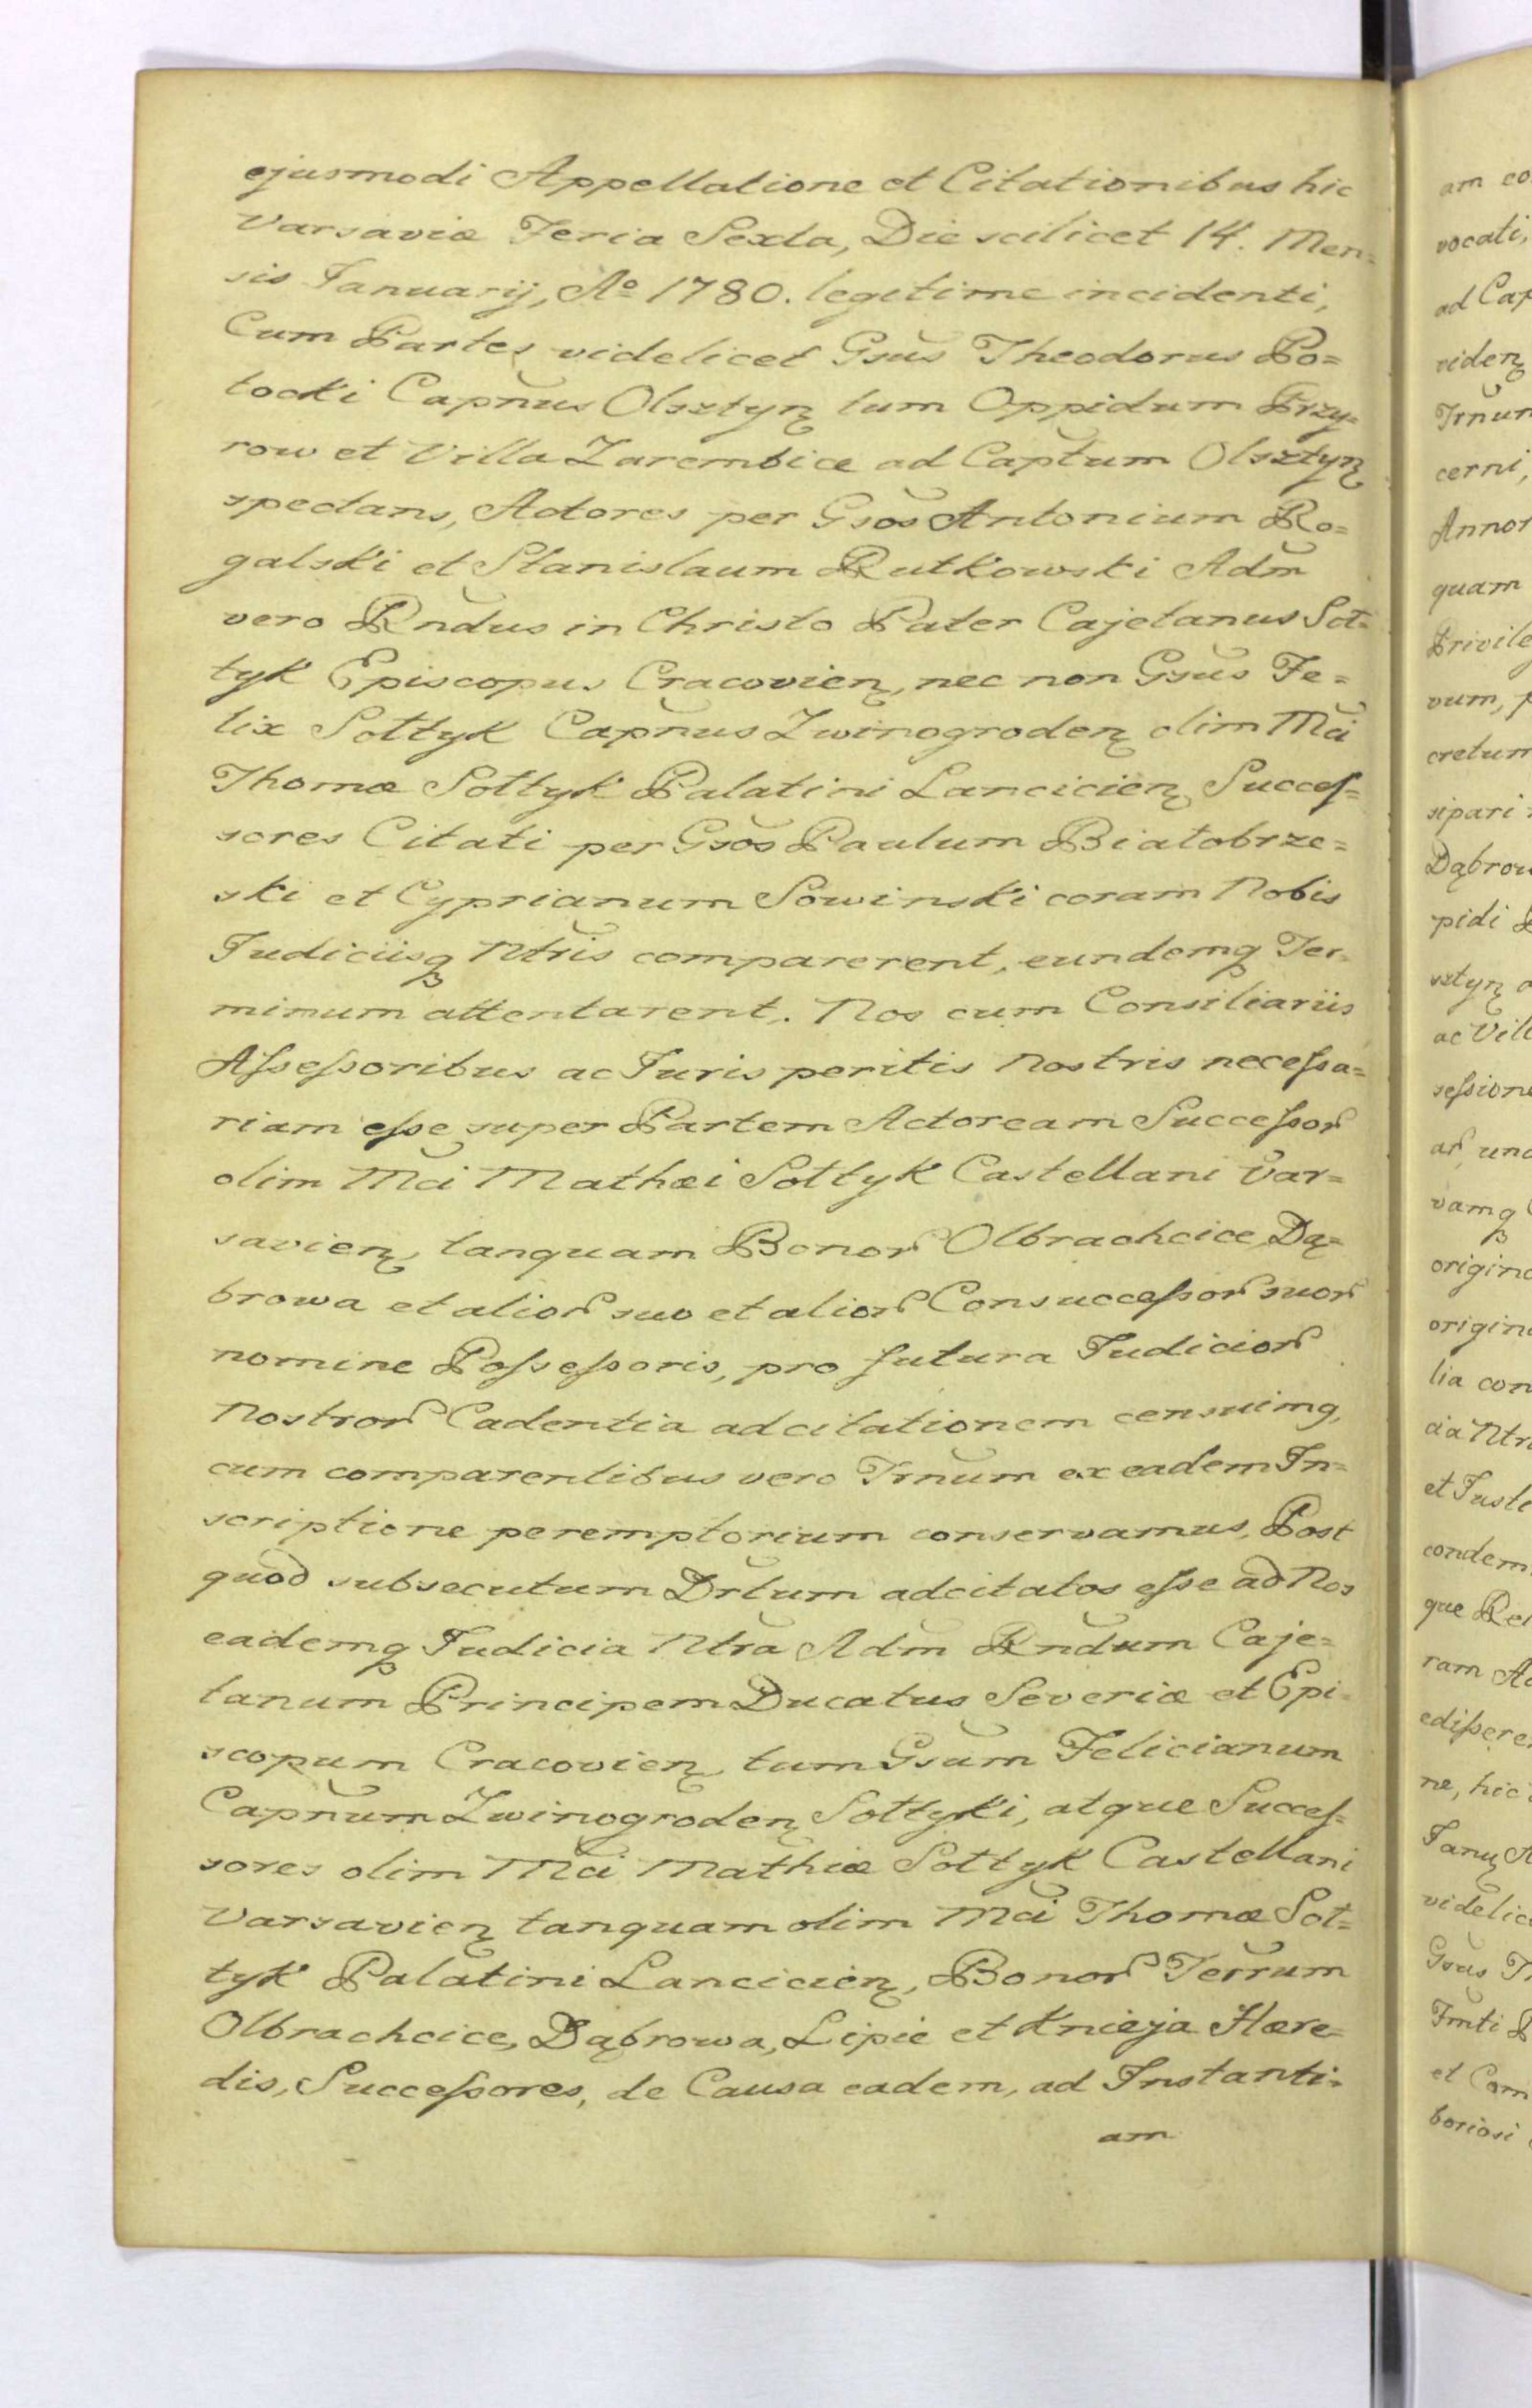 ejusmodi Appellatione et Citationibus hic
Varsaviæ Feria Sexta, Die scilicet 14. Men=
sis Januarij, Aº 1780. legitime incidenti,
Cum Partes videlicet Gsus Theodorus Po=
tocki Capnus Olsztyn̨ tum Oppidum Przy=
row et Villa Zarembice ad Captum Olsztyn̨
spectans, Actores per Gsos Antonium Ro=
galski et Stanislaum Rutkowski Adm
vero Rndus in Christo Pater Cajetanus Soł=
tyk Episcopus Cracovien̨, nec non Gsus Fe=
lix Sołtyk Capnus Zwinogroden̨ olim Mci
Thomæ Sołtyk Palatini Lancicien̨ Succeſ=
sores Citati per Gsos Paulum Białobrze=
ski et Cyprianum Sowinski coram Nobis
Judiciisqꝫ Ntris comparerent, eundemqꝫ Ter=
minum attentarent. Nos cum Consiliariis
Aſseſsoribus ac Juris peritis Nostris neceſsa=
riam eſse super Partem Actoream Succeſsorꝝ
olim Mci Mathæi Sołtyk Castellani Var=
savien̨, tanquam Bonorꝝ Olbrachcice, Dą=
browa et aliorꝝ suo et aliorꝝ Consucceſsorꝝ suorꝝ
nomine Poſseſsoris, pro futura Judiciorꝝ
Nostrorꝝ Cadentia adcitationem censuimꝗ,
cum comparentibus vero Trnum ex eadem In=
scriptione peremptorium conservamus, Post
quod subsecutum Drtum adcitatos eſse ad Nos
eademqꝫ Judicia Ntra Adm Rndum Caje=
tanum Principem Ducatus Severiæ et Epi=
scopum Cracovien̨ tum Gsum Felicianum
Capnum Zwinogroden̨ Sołtyki, atque Succeſ=
sores olim Mci Mathiæ Sołtyk Castellani
Varsavien̨ tanquam olim Mci Thomæ Soł=
tyk Palatini Lancicien̨, Bonorꝝ Terrum
Olbrachcice, Dąbrowa, Lipie et Knieja Hære=
dis, Succeſsores, de Causa eadem, ad Instanti=
am
am co
vocati,
ad Cap
viden̨
Trnum
cerni,
Annor
quam
Privile
vum, p
cretum
sipari
Dąbrow
pidi
sztyn̨ a
ac Vill
seſsion
arꝝ und
vamqꝫ
origina
origin
lia con
cia Ntr
et Juste
condem
que Re
ram Ac
ediſsere
ne, hic
Janų A
videlic
Gsus T
Imti P
et Com
boriosi